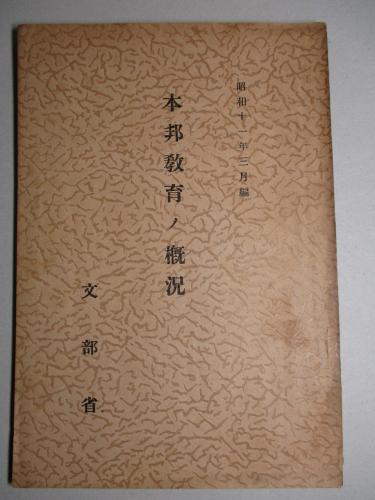 昭和十一年三月編
本邦教育ノ概況
文部省